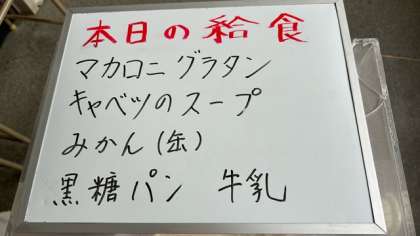 本日の給食
マカロニグラタン
キャベツのスープ
みかん(缶)
黒糖パン 牛乳